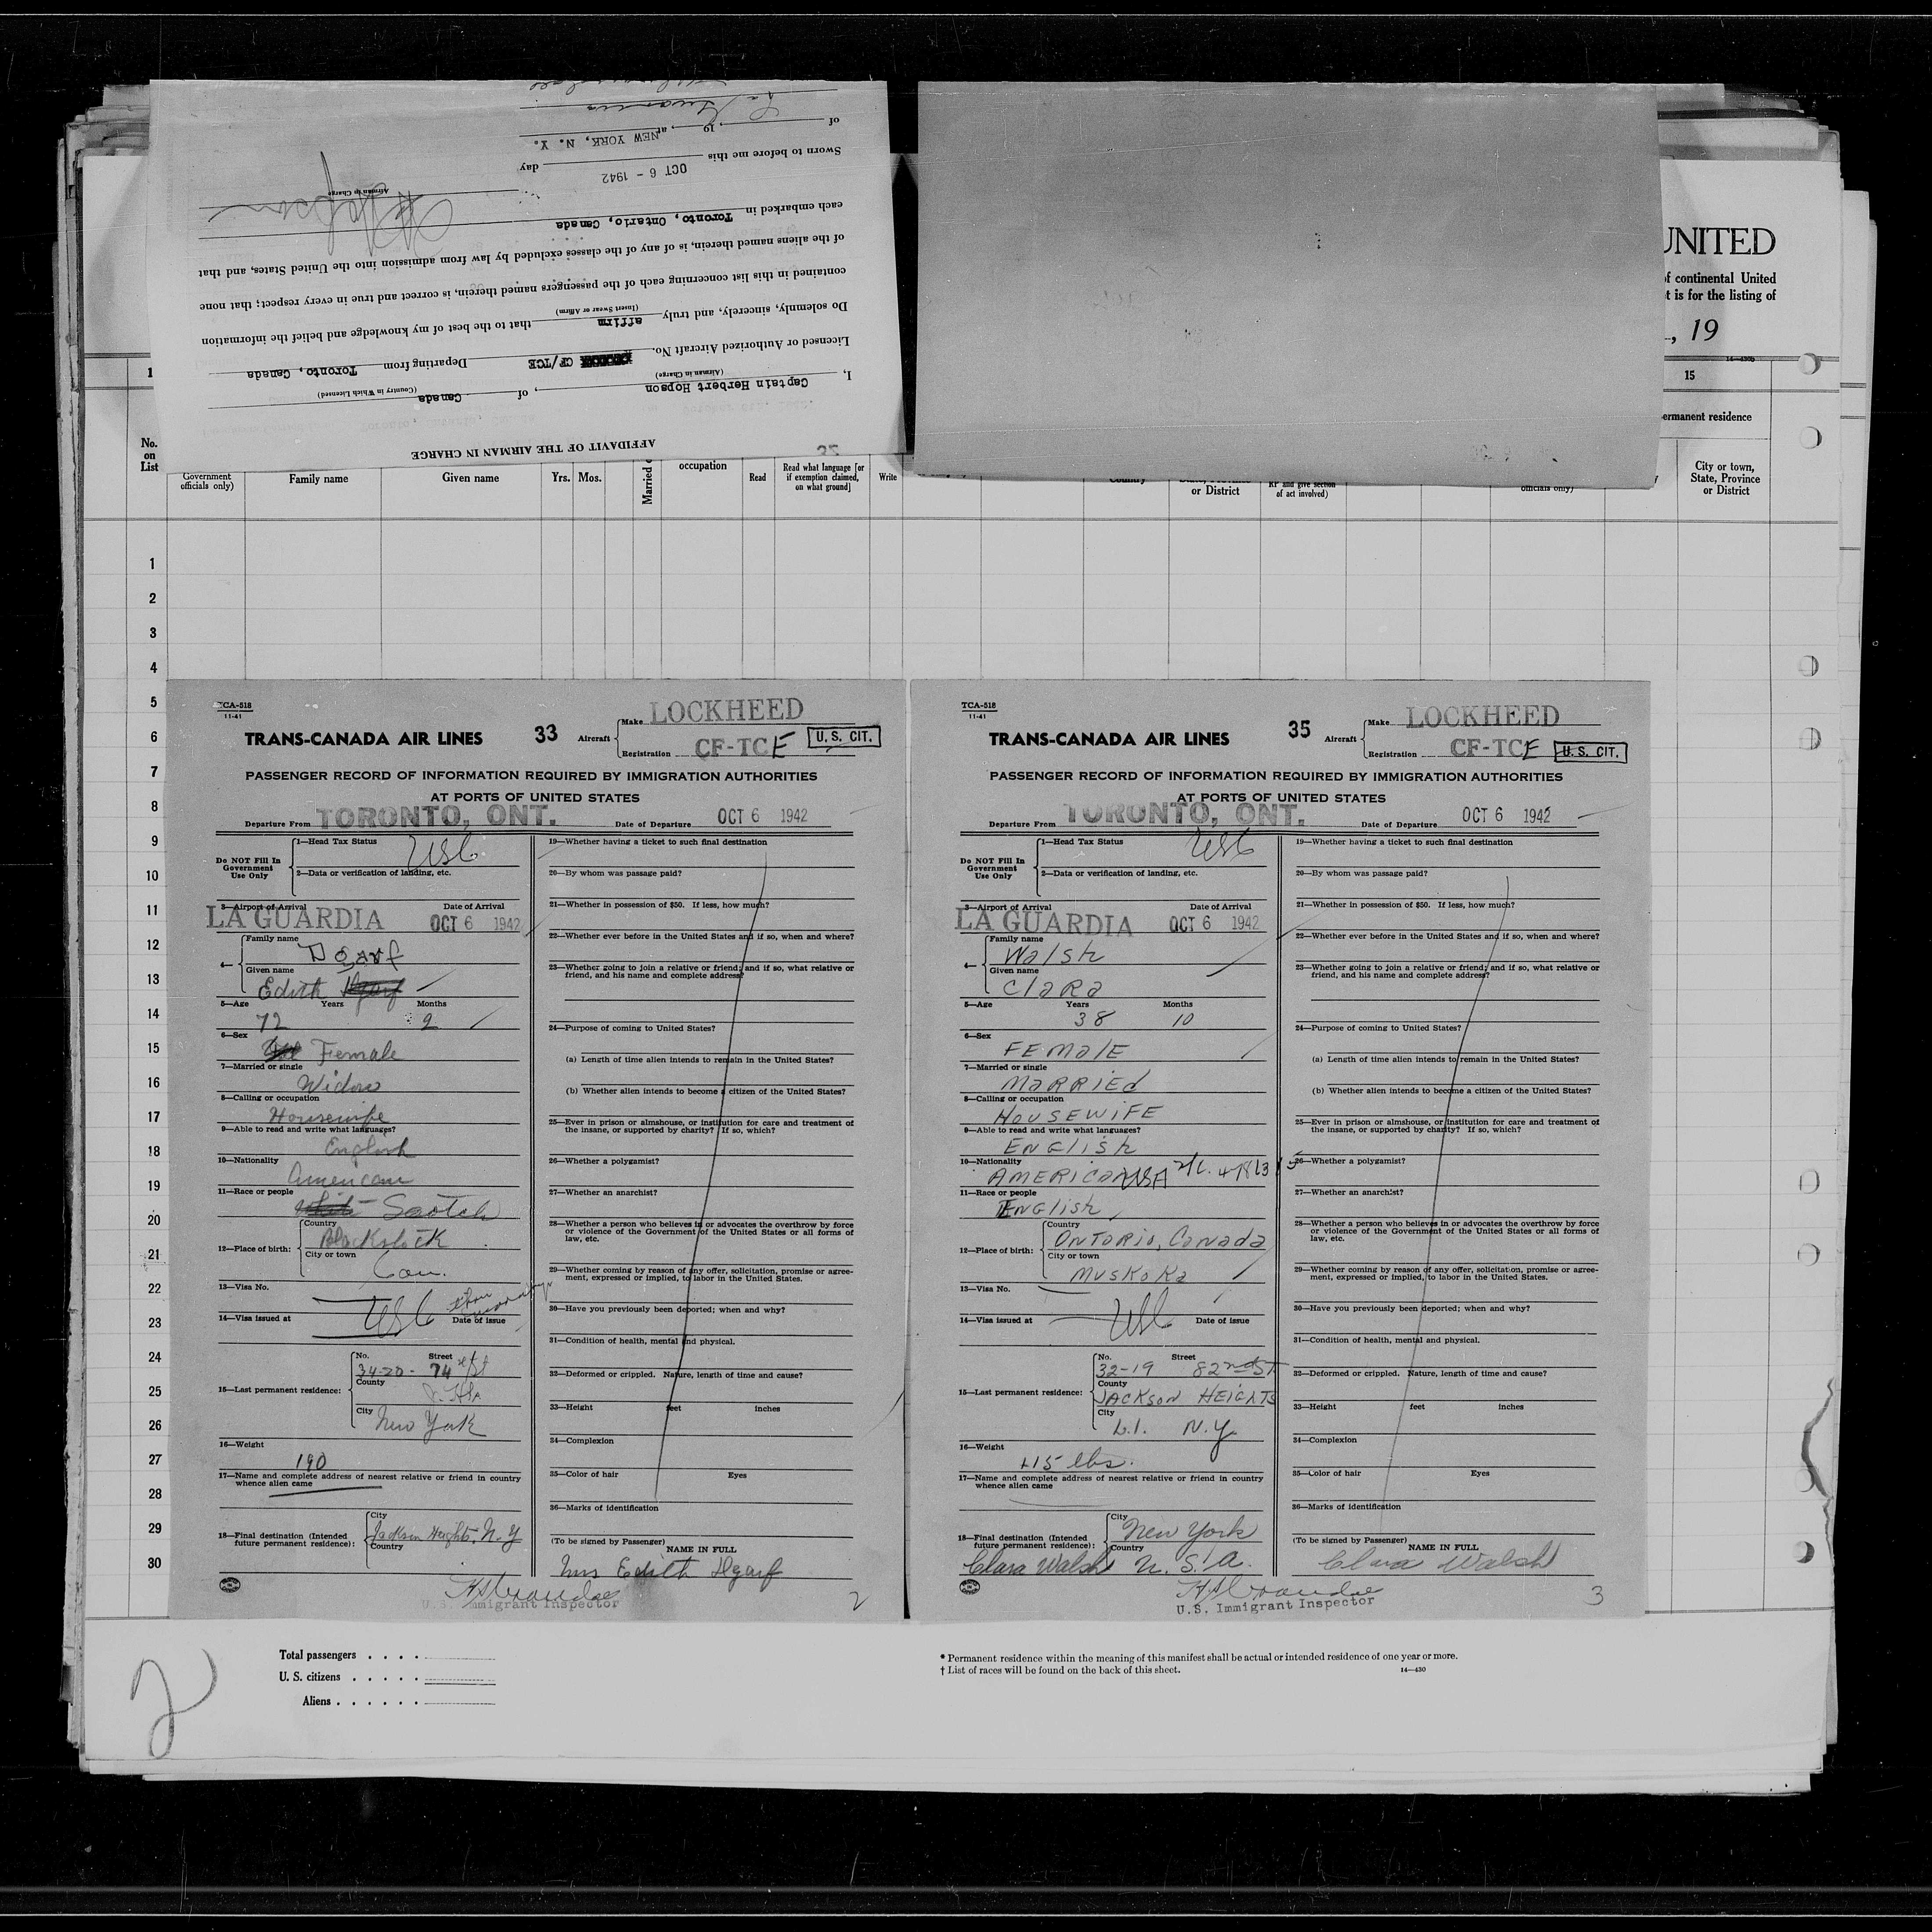 AFFIDAVIT OF THE AIRMAN IN CHARGE
I, Captain Herbert Hopson, of Canada
(Airman in Charge) (Country in Which Licensed)
Licensed or Authorized Aircraft No. CF/TCE Departing from Toronto, Canada
Do solemnly, sincerely, and truly affirm that to the best of my knowledge and belief the information
(Insert Swear or Affirm)
contained in this list concerning each of the passengers named therein, is correct and true in every respect; that none
of the aliens named therein, is of any of the classes excluded by law from admission into the United States, and that
each embarked in Toronto, Ontario, Canada
Airman in Charge
Sworn to before me this OCT 6 - 1942 day
of 19 , at NEW YORK, N. Y.
UNITED
of continental United
t is for the listing of
, 19
14—430b
15
ermanent residence
No. on List
Government officials only)
Family name
Given name
Yrs. Mos.
Married o
occupation
Read
Read what language [or if exemption claimed, on what ground]
Write
Country
or District
RP and give section of act involved)
officials only)
City or town, State, Province or District
1
2
3
4
5
6
7
8
9
10
11
12
13
14
15
16
17
18
19
20
21
22
23
24
25
26
27
28
29
30
TCA-518
11-41
TRANS-CANADA AIR LINES 33 Aircraft
Make LOCKHEED
Registration CF-TCE U. S. CIT.
PASSENGER RECORD OF INFORMATION REQUIRED BY IMMIGRATION AUTHORITIES
AT PORTS OF UNITED STATES
Departure From TORONTO, ONT. Date of Departure OCT 6 1942
Do NOT Fill In Government Use Only
1—Head Tax Status USC
2—Data or verification of landing, etc.
3—Airport of Arrival Date of Arrival
LA GUARDIA OCT 6 1942
4—
Family name
Given name
Edith
5—Age Years Months
72 2
6—Sex
Female
7—Married or single
Widow
8—Calling or occupation
Housewife
9—Able to read and write what languages?
English
10—Nationality
American
11—Race or people
Scotch
12—Place of birth:
Country
Blackstock
City or town
Can.
13—Visa No.
USC
14—Visa issued at Date of issue
15—Last permanent residence:
No. Street
34-20- 74th St
County
City
New York
16—Weight
190
17—Name and complete address of nearest relative or friend in country whence alien came
18—Final destination (Intended future permanent residence):
City
Jackson Heights. N. Y
Country
19—Whether having a ticket to such final destination
20—By whom was passage paid?
21—Whether in possession of $50. If less, how much?
22—Whether ever before in the United States and if so, when and where?
23—Whether going to join a relative or friend; and if so, what relative or friend, and his name and complete address?
24—Purpose of coming to United States?
(a) Length of time alien intends to remain in the United States?
(b) Whether alien intends to become a citizen of the United States?
25—Ever in prison or almshouse, or institution for care and treatment of the insane, or supported by charity? If so, which?
26—Whether a polygamist?
27—Whether an anarchist?
28—Whether a person who believes in or advocates the overthrow by force or violence of the Government of the United States or all forms of law, etc.
29—Whether coming by reason of any offer, solicitation, promise or agreement, expressed or implied, to labor in the United States.
30—Have you previously been deported; when and why?
31—Condition of health, mental and physical.
32—Deformed or crippled. Nature, length of time and cause?
33—Height feet inches
34—Complexion
35—Color of hair Eyes
36—Marks of identification
(To be signed by Passenger) NAME IN FULL
Mrs Edith
U.S. Immigrant Inspector
2
TCA-518
11-41
TRANS-CANADA AIR LINES 35 Aircraft
Make LOCKHEED
Registration CF-TCE U. S. CIT.
PASSENGER RECORD OF INFORMATION REQUIRED BY IMMIGRATION AUTHORITIES
AT PORTS OF UNITED STATES
Departure From TORONTO, ONT. Date of Departure OCT 6 1942
Do NOT Fill In Government Use Only
1—Head Tax Status USC
2—Data or verification of landing, etc.
3—Airport of Arrival Date of Arrival
LA GUARDIA OCT 6 1942
4—
Family name
Walsh
Given name
Clara
5—Age Years Months
38 10
6—Sex
FEMALE
7—Married or single
MARRIED
8—Calling or occupation
HOUSEWIFE
9—Able to read and write what languages?
ENGLISH
10—Nationality
AMERICAN USA
11—Race or people
ENGLISH
12—Place of birth:
Country
ONTARIO, Canada
City or town
MUSKOKA
13—Visa No.
USC
14—Visa issued at Date of issue
15—Last permanent residence:
No. Street
32-19 82nd ST
County
JACKSON HEIGHTS
City
L.I. N.Y.
16—Weight
115 lbs.
17—Name and complete address of nearest relative or friend in country whence alien came
18—Final destination (Intended future permanent residence):
City
New York
Country
Clara Walsh U. S. A.
19—Whether having a ticket to such final destination
20—By whom was passage paid?
21—Whether in possession of $50. If less, how much?
22—Whether ever before in the United States and if so, when and where?
23—Whether going to join a relative or friend; and if so, what relative or friend, and his name and complete address?
24—Purpose of coming to United States?
(a) Length of time alien intends to remain in the United States?
(b) Whether alien intends to become a citizen of the United States?
25—Ever in prison or almshouse, or institution for care and treatment of the insane, or supported by charity? If so, which?
26—Whether a polygamist?
27—Whether an anarchist?
28—Whether a person who believes in or advocates the overthrow by force or violence of the Government of the United States or all forms of law, etc.
29—Whether coming by reason of any offer, solicitation, promise or agreement, expressed or implied, to labor in the United States.
30—Have you previously been deported; when and why?
31—Condition of health, mental and physical.
32—Deformed or crippled. Nature, length of time and cause?
33—Height feet inches
34—Complexion
35—Color of hair Eyes
36—Marks of identification
(To be signed by Passenger) NAME IN FULL
Clara Walsh
U.S. Immigrant Inspector
3
2
Total passengers . . . .
U. S. citizens . . . . .
Aliens . . . . . .
* Permanent residence within the meaning of this manifest shall be actual or intended residence of one year or more.
† List of races will be found on the back of this sheet. 14—430